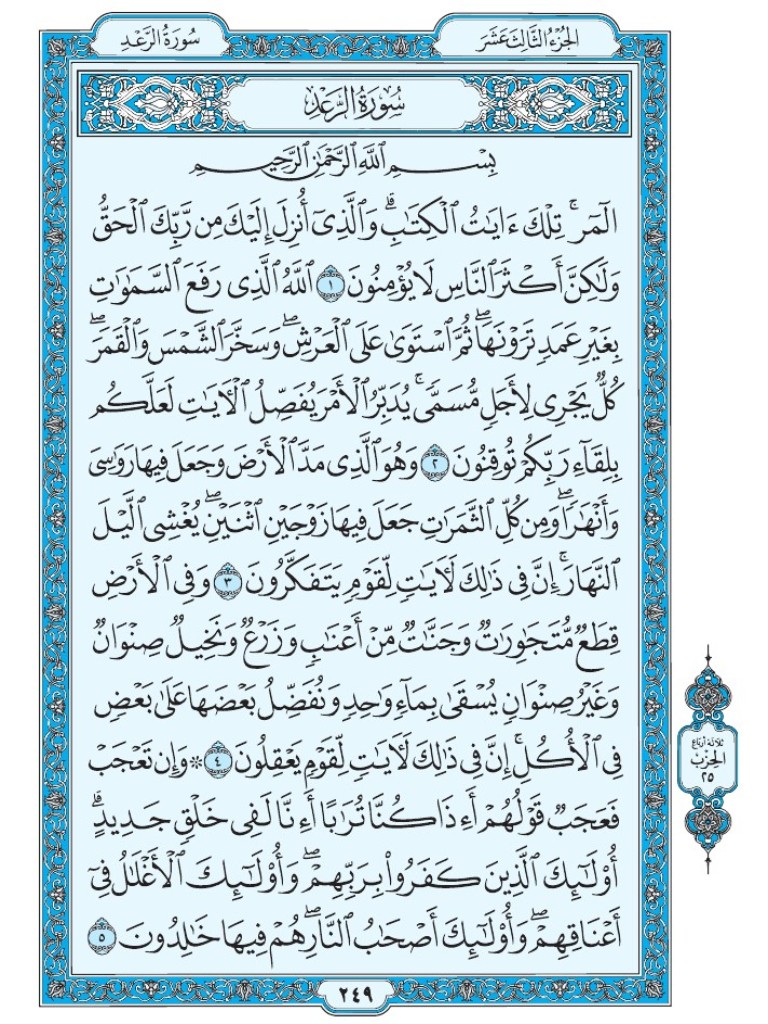 الجُزْءُ الثَّالِثَ عَشَرَ
سُورَةُ الرَّعْدِ
سُورَةُ الرَّعْدِ
بِسْمِ اللَّهِ الرَّحْمَٰنِ الرَّحِيمِ
الٓمٓرۚ تِلۡكَ ءَايَٰتُ ٱلۡكِتَٰبِۗ وَٱلَّذِيٓ أُنزِلَ إِلَيۡكَ مِن رَّبِّكَ ٱلۡحَقُّ
وَلَٰكِنَّ أَكۡثَرَ ٱلنَّاسِ لَا يُؤۡمِنُونَ ١ ٱللَّهُ ٱلَّذِي رَفَعَ ٱلسَّمَٰوَٰتِ
بِغَيۡرِ عَمَدٖ تَرَوۡنَهَاۖ ثُمَّ ٱسۡتَوَىٰ عَلَى ٱلۡعَرۡشِۖ وَسَخَّرَ ٱلشَّمۡسَ وَٱلۡقَمَرَۖ
كُلّٞ يَجۡرِي لِأَجَلٖ مُّسَمّٗىۚ يُدَبِّرُ ٱلۡأَمۡرَ يُفَصِّلُ ٱلۡأٓيَٰتِ لَعَلَّكُم
بِلِقَآءِ رَبِّكُمۡ تُوقِنُونَ ٢ وَهُوَ ٱلَّذِي مَدَّ ٱلۡأَرۡضَ وَجَعَلَ فِيهَا رَوَٰسِيَ
وَأَنۡهَٰرٗاۖ وَمِن كُلِّ ٱلثَّمَرَٰتِ جَعَلَ فِيهَا زَوۡجَيۡنِ ٱثۡنَيۡنِۖ يُغۡشِي ٱلَّيۡلَ
ٱلنَّهَارَۚ إِنَّ فِي ذَٰلِكَ لَأٓيَٰتٖ لِّقَوۡمٖ يَتَفَكَّرُونَ ٣ وَفِي ٱلۡأَرۡضِ
قِطَعٞ مُّتَجَٰوِرَٰتٞ وَجَنَّٰتٞ مِّنۡ أَعۡنَٰبٖ وَزَرۡعٞ وَنَخِيلٞ صِنۡوَانٞ
وَغَيۡرُ صِنۡوَانٖ يُسۡقَىٰ بِمَآءٖ وَٰحِدٖ وَنُفَضِّلُ بَعۡضَهَا عَلَىٰ بَعۡضٖ
فِي ٱلۡأُكُلِۚ إِنَّ فِي ذَٰلِكَ لَأٓيَٰتٖ لِّقَوۡمٖ يَعۡقِلُونَ ٤ ۞ وَإِن تَعۡجَبۡ
فَعَجَبٞ قَوۡلُهُمۡ أَءِذَا كُنَّا تُرَٰبًا أَءِنَّا لَفِي خَلۡقٖ جَدِيدٍۗ
أُوْلَٰٓئِكَ ٱلَّذِينَ كَفَرُواْ بِرَبِّهِمۡۖ وَأُوْلَٰٓئِكَ ٱلۡأَغۡلَٰلُ فِيٓ
أَعۡنَاقِهِمۡۖ وَأُوْلَٰٓئِكَ أَصۡحَٰبُ ٱلنَّارِۖ هُمۡ فِيهَا خَٰلِدُونَ ٥
ثلاثة أرباع
الحِزْب
٢٥
٢٤٩